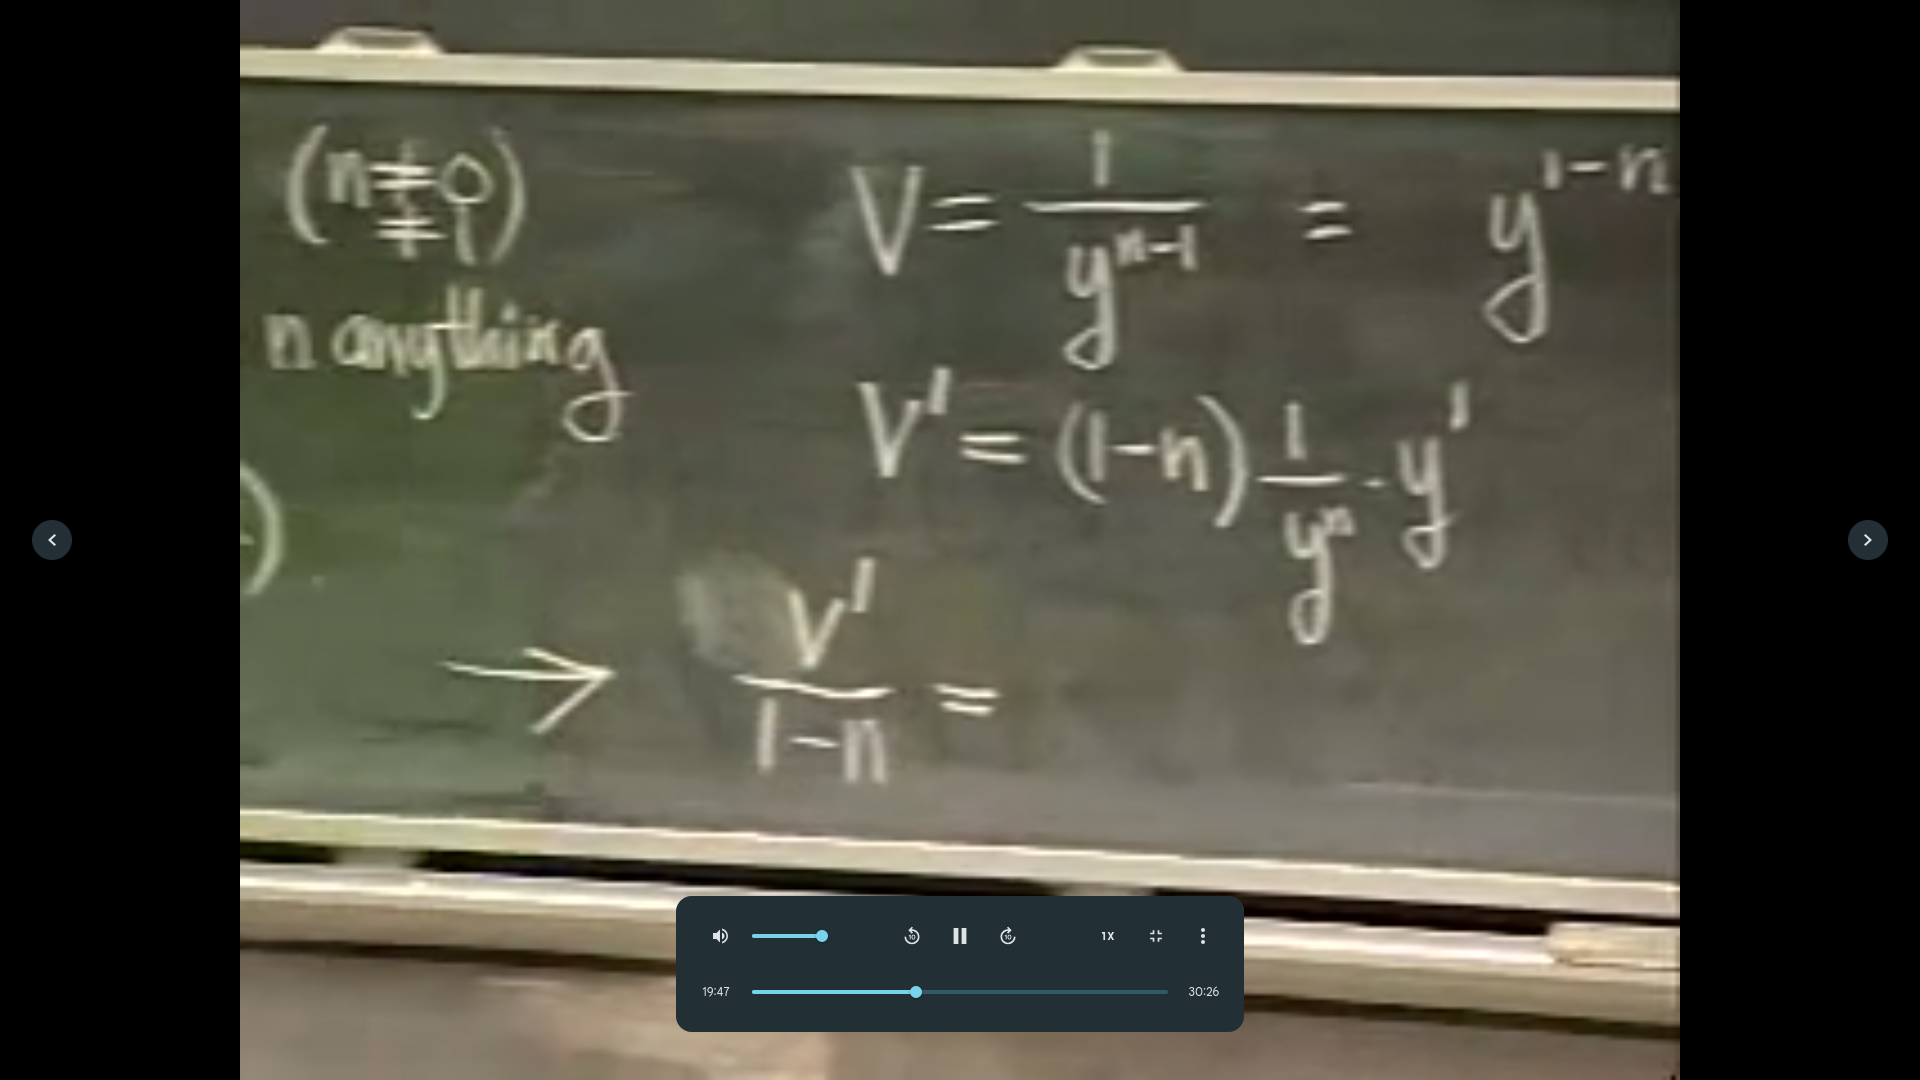 (n ≠ 0)
≠ 1
n anything
V = 1/y^(n-1) = y^(1-n)
V' = (1-n) 1/y^n · y'
→ V'/(1-n) =
10
10
1X
19:47
30:26